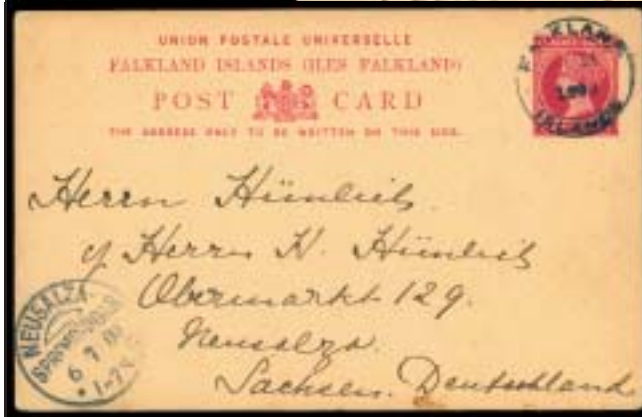 UNION POSTALE UNIVERSELLE
FALKLAND ISLANDS (ILES FALKLAND)
POST CARD
THE ADDRESS ONLY TO BE WRITTEN ON THIS SIDE.
FALKLAND
ISLANDS
Herrn Hünlich
Herrn H. Hünlich
Obermarkt 129.
Neusalza.
Sachsen. Deutschland
NEUSALZA
6 7 0